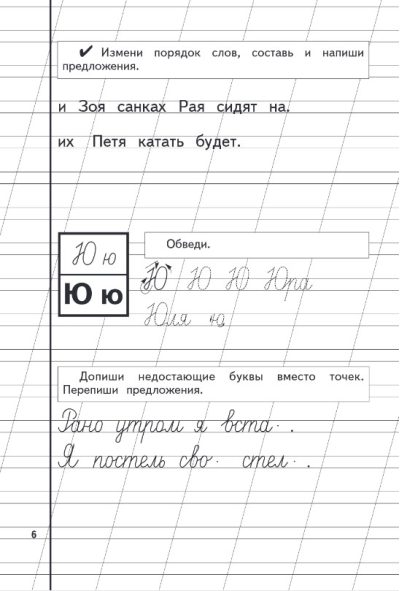 ✔ Измени порядок слов, составь и напиши
предложения.
и Зоя санках Рая сидят на.
их Петя катать будет.
Ю ю
Обведи.
Ю ю
Ю Ю Ю Юра
Юля ю
Допиши недостающие буквы вместо точек.
Перепиши предложения.
Рано утром я вста· .
Я постель сво· стел· .
6